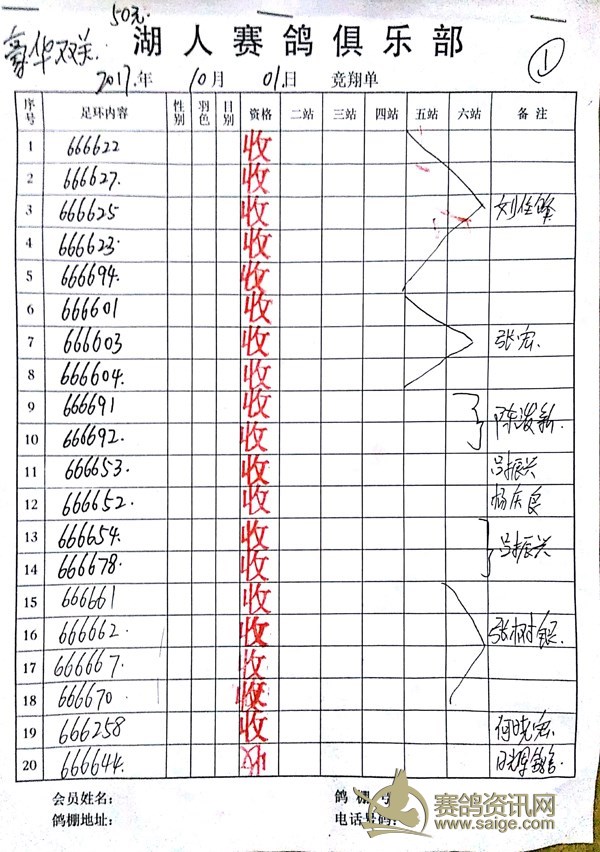 50元
豪华双关
湖人赛鸽俱乐部
①
2017年 10月 01日 竞翔单
序号 足环内容 性别 羽色 日别 资格 二站 三站 四站 五站 六站 备注
1 666622 收
2 666627. 收
3 666625 收
4 666623. 收
5 666694. 收
6 666601 收
7 666603 收 张宏
8 666604. 收
9 666691 收
10 666692. 收
11 666653. 收 吕振兴
12 666652. 收 杨庆良
13 666654. 收 吕振兴
14 666678. 收
15 666661 收
16 666662. 收 张树银.
17 666667. 收
18 666670 收
19 666258 收 何晓宏
20 666644.
会员姓名: 鸽棚
鸽棚地址: 电话号码:
赛鸽资讯网
www.saige.com